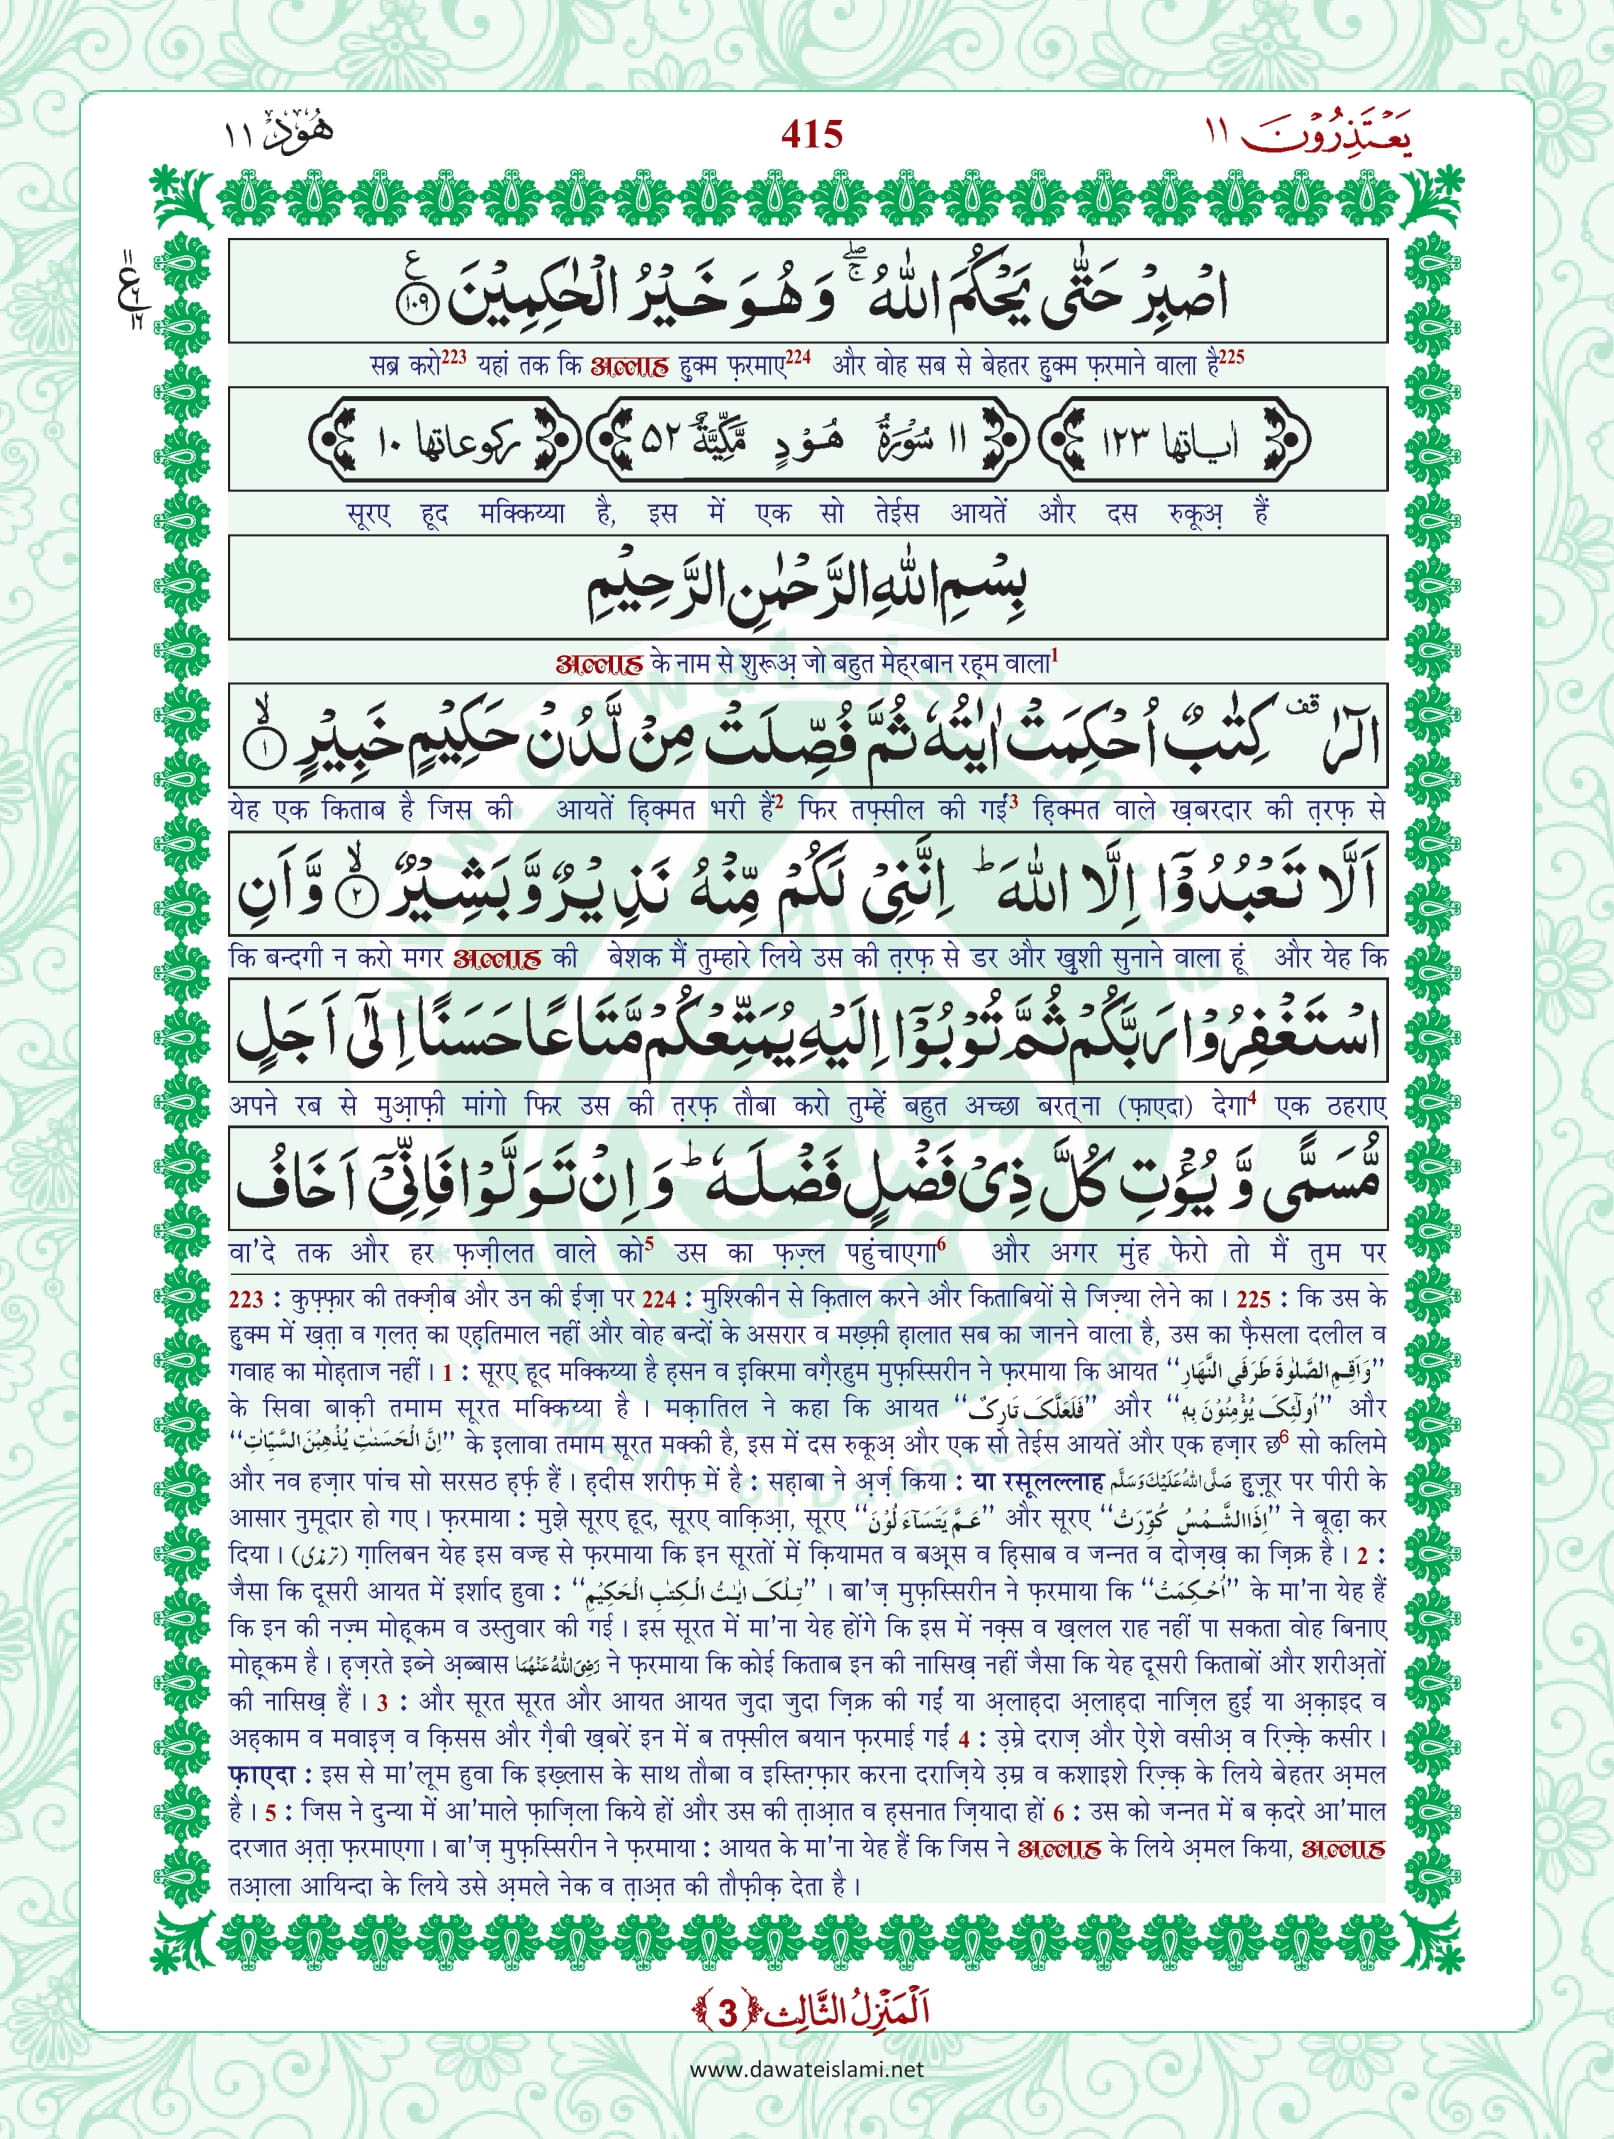 يَعْتَذِرُوْنَ ١١
415
هُوْد ١١
اصْبِرْ حَتّٰى يَحْكُمَ اللّٰهُ ۚۖ وَهُوَ خَيْرُ الْحٰكِمِيْنَ ۠﴿۱۰۹﴾
सब्र करो223 यहां तक कि अल्लाह हुक्म फ़रमाए224 और वोह सब से बेहतर हुक्म फ़रमाने वाला है225
اٰیاتها ١٢٣ ١١ سُوْرَةُ هُوْدٍ مَّكِّيَّةٌ ٥٢ ركوعاتها ١٠
सूरए हूद मक्किय्या है, इस में एक सो तेईस आयतें और दस रुकूअ़ हैं
بِسْمِ اللّٰهِ الرَّحْمٰنِ الرَّحِيْمِ
अल्लाह के नाम से शुरूअ़ जो बहुत मेह्‌रबान रह़्‌म वाला1
الٓرٰ ۫ كِتٰبٌ اُحْكِمَتْ اٰيٰتُهٗ ثُمَّ فُصِّلَتْ مِنْ لَّدُنْ حَكِيْمٍ خَبِيْرٍ ۙ﴿۱﴾
येह एक किताब है जिस की आयतें ह़िक्मत भरी हैं2 फिर तफ़्सील की गईं3 ह़िक्मत वाले ख़बरदार की त़रफ़ से
اَلَّا تَعْبُدُوْٓا اِلَّا اللّٰهَ ؕ اِنَّنِيْ لَكُمْ مِّنْهُ نَذِيْرٌ وَّبَشِيْرٌ ۙ﴿۲﴾ وَّاَنِ
कि बन्दगी न करो मगर अल्लाह की बेशक मैं तुम्हारे लिये उस की त़रफ़ से डर और ख़ुशी सुनाने वाला हूं और येह कि
اسْتَغْفِرُوْا رَبَّكُمْ ثُمَّ تُوْبُوْٓا اِلَيْهِ يُمَتِّعْكُمْ مَّتَاعًا حَسَنًا اِلٰٓى اَجَلٍ
अपने रब से मुआ़फ़ी मांगो फिर उस की त़रफ़ तौबा करो तुम्हें बहुत अच्छा बरत्‌ना (फ़ाएदा) देगा4 एक ठहराए
مُّسَمًّى وَّ يُؤْتِ كُلَّ ذِيْ فَضْلٍ فَضْلَهٗ ؕ وَ اِنْ تَوَلَّوْا فَاِنِّيْٓ اَخَافُ
वा'दे तक और हर फ़ज़ीलत वाले को5 उस का फ़ज़्ल पहुंचाएगा6 और अगर मुंह फेरो तो मैं तुम पर
223 : कुफ़्फ़ार की तक्ज़ीब और उन की ईज़ा पर 224 : मुश्रिकीन से क़िताल करने और किताबियों से जिज़्या लेने का। 225 : कि उस के
हुक्म में ख़त़ा व ग़लत़ का एह़्तिमाल नहीं और वोह बन्दों के असरार व मख़्फ़ी ह़ालात सब का जानने वाला है, उस का फ़ैसला दलील व
गवाह का मोह़्ताज नहीं। 1 : सूरए हूद मक्किय्या है ह़सन व इक्रिमा वग़ैरहुम मुफ़स्सिरीन ने फ़रमाया कि आयत ‘‘وَاَقِمِ الصَّلٰوةَ طَرَفَىِ النَّهَارِ’’
के सिवा बाक़ी तमाम सूरत मक्किय्या है। मक़ातिल ने कहा कि आयत ‘‘فَلَعَلَّكَ تَارِكٌ’’ और ‘‘اُولٰٓئِكَ يُؤْمِنُوْنَ بِهٖ’’ और
‘‘اِنَّ الْحَسَنٰتِ يُذْهِبْنَ السَّيِّاٰتِ’’ के इलावा तमाम सूरत मक्की है, इस में दस रुकूअ़ और एक सो तेईस आयतें और एक हज़ार छ6 सो कलिमे
और नव हज़ार पांच सो सरसठ ह़र्फ़ हैं। ह़दीस शरीफ़ में है : सह़ाबा ने अ़र्ज़ किया : या रसूलल्लाह صَلَّى اللّٰهُ عَلَيْكَ وَسَلَّم हुज़ूर पर पीरी के
आसार नुमूदार हो गए। फ़रमाया : मुझे सूरए हूद, सूरए वाक़िआ़, सूरए ‘‘عَمَّ يَتَسَآءَلُوْنَ’’ और सूरए ‘‘اِذَا الشَّمْسُ كُوِّرَتْ’’ ने बूढ़ा कर
दिया। (ترمذی) ग़ालिबन येह इस वज्ह से फ़रमाया कि इन सूरतों में क़ियामत व बअ़्स व ह़िसाब व जन्नत व दोज़ख़ का ज़िक्र है। 2 :
जैसा कि दूसरी आयत में इर्शाद हुवा : ‘‘تِلْكَ اٰيٰتُ الْكِتٰبِ الْحَكِيْمِ’’। बा'ज़ मुफ़स्सिरीन ने फ़रमाया कि ‘‘اُحْكِمَتْ’’ के मा'ना येह हैं
कि इन की नज़्म मोह़्कम व उस्तुवार की गई। इस सूरत में मा'ना येह होंगे कि इस में नक़्स व ख़लल राह नहीं पा सकता वोह बिनाए
मोह़्कम है। ह़ज़रते इब्ने अ़ब्बास رَضِىَ اللّٰهُ عَنْهُمَا ने फ़रमाया कि कोई किताब इन की नासिख़ नहीं जैसा कि येह दूसरी किताबों और शरीअ़तों
की नासिख़ हैं। 3 : और सूरत सूरत और आयत आयत जुदा जुदा ज़िक्र की गईं या अ़लाह़दा अ़लाह़दा नाज़िल हुईं या अ़क़ाइद व
अह़काम व मवाइज़ व क़िसस और ग़ैबी ख़बरें इन में ब तफ़्सील बयान फ़रमाई गईं 4 : उ़म्रे दराज़ और ऐ़शे वसीअ़ व रिज़्क़े कसीर।
फ़ाएदा : इस से मा'लूम हुवा कि इख़्लास के साथ तौबा व इस्तिग़्फ़ार करना दराज़िये उ़म्र व कशाइशे रिज़्क़ के लिये बेहतर अ़मल
है। 5 : जिस ने दुन्या में आ'माले फ़ाज़िला किये हों और उस की त़ाआ़त व ह़सनात ज़ियादा हों 6 : उस को जन्नत में ब क़दरे आ'माल
दरजात अ़त़ा फ़रमाएगा। बा'ज़ मुफ़स्सिरीन ने फ़रमाया : आयत के मा'ना येह हैं कि जिस ने अल्लाह के लिये अ़मल किया, अल्लाह
तआ़ला आयिन्दा के लिये उसे अ़मले नेक व त़ाअ़त की तौफ़ीक़ देता है।
اَلْمَنْزِلُ الثَّالِث ﴿3﴾
www.dawateislami.net